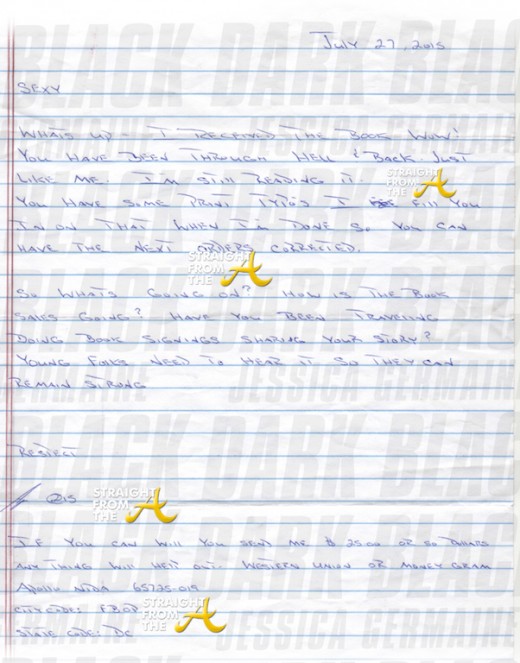 July 27, 2015
Sexy
Whats up - I received the book. Wow!
You have been through hell & back just
like me. I'm still reading it.
You have some print typo's I fill you
in on that when I'm done so you can
have the next orders corrected.
So whats going on? How is the book
sales going? Have you been traveling
doing book signings sharing your story?
Young folks need to hear it so they can
remain strong
Respect
If you can will you send me $ 25.00 or so
any thing will help out. Western Union or Money Gram
Apollo Nida 65725-019
City code: FBOP
State code: DC
STRAIGHT
FROM
THE A
STRAIGHT
FROM
THE A
STRAIGHT
FROM
THE A
STRAIGHT
FROM
THE A
BLACK DARK BLACK
JESSICA GERMAINE
BLACK DARK BLACK